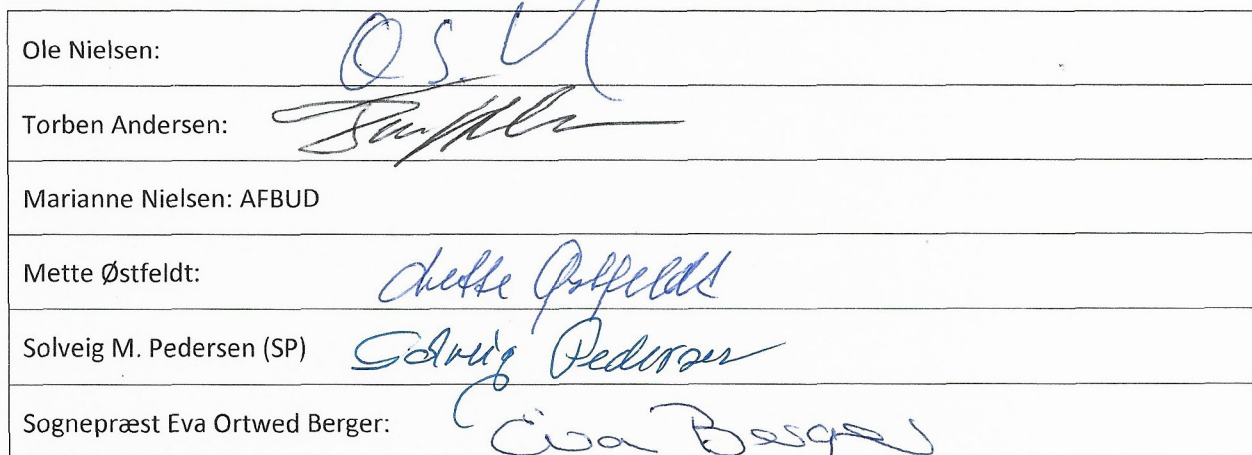 Ole Nielsen: O S. N
Torben Andersen:
Marianne Nielsen: AFBUD
Mette Østfeldt: Mette Østfeldt
Solveig M. Pedersen (SP) Solveig Pedersen
Sognepræst Eva Ortwed Berger: Eva Berger